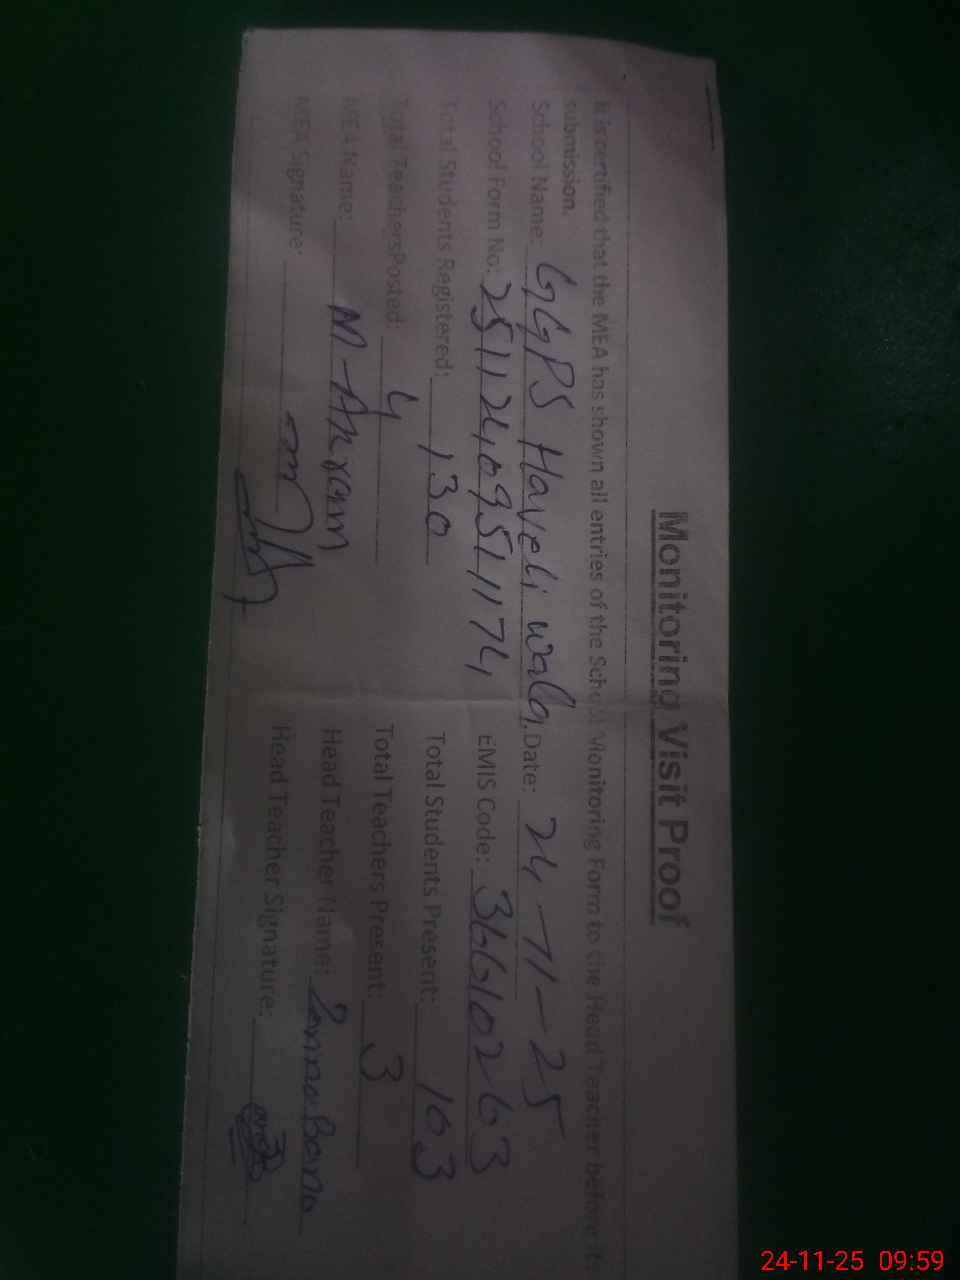 Monitoring Visit Proof
It is certified that the MEA has shown all entries of the School Monitoring Form to the Head Teacher before its
submission.
School Name: GGPS Haveli wala Date: 24-11-25
School Form No: 25112409511174 EMIS Code: 36610263
Total Students Registered: 130 Total Students Present: 103
Total Teachers Posted: 4 Total Teachers Present: 3
MEA Name: M-Akram Head Teacher Name: Bano
MEA Signature: Head Teacher Signature:
24-11-25 09:59